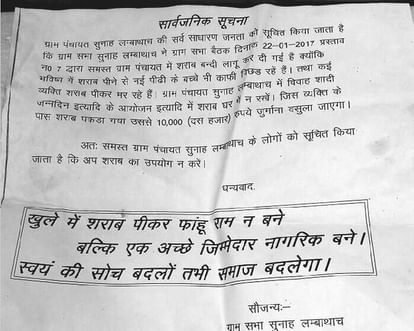 सार्वजनिक सूचना
ग्राम पंचायत सुनाह लम्बाथाच की सर्व साधारण जनता को सूचित किया जाता है
कि ग्राम सभा सुनाह लम्बाथाच ने ग्राम सभा बैठक दिनांक 22-01-2017 प्रस्ताव
न0 7 द्वारा समस्त ग्राम पंचायत में शराब बन्दी लागू कर दी गई है क्योंकि
भविष्य में शराब पीने से नई पीढी के बच्चे भी काफी बिगड रहे हैं। तथा कई
व्यक्ति शराब पीकर मर रहे हैं। ग्राम पंचायत सुनाह लम्बाथाच में विवाह शादी
जन्मदिन इत्यादि के आयोजन इत्यादि में शराब घर में न रखें। जिस व्यक्ति के
पास शराब पकडा गया उससे 10,000 (दस हजार) रुपये जुर्माना वसुला जाएगा।
अतः समस्त ग्राम पंचायत सुनाह लम्बाथाच के लोगों को सूचित किया
जाता है कि अप शराब का उपयोग न करें।
धन्यवाद
खुले में शराब पीकर फांहू राम न बने
बल्कि एक अच्छे जिमेदार नागरिक बने।
स्वयं की सोच बदलों तभी समाज बदलेगा।
सौजन्यः-
ग्राम सभा सुनाह लम्बाथाच